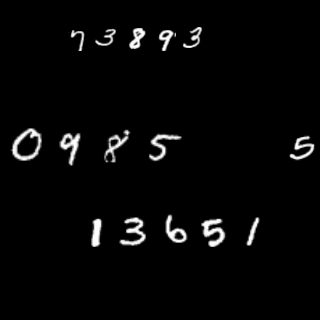 73893
0985 5
13651